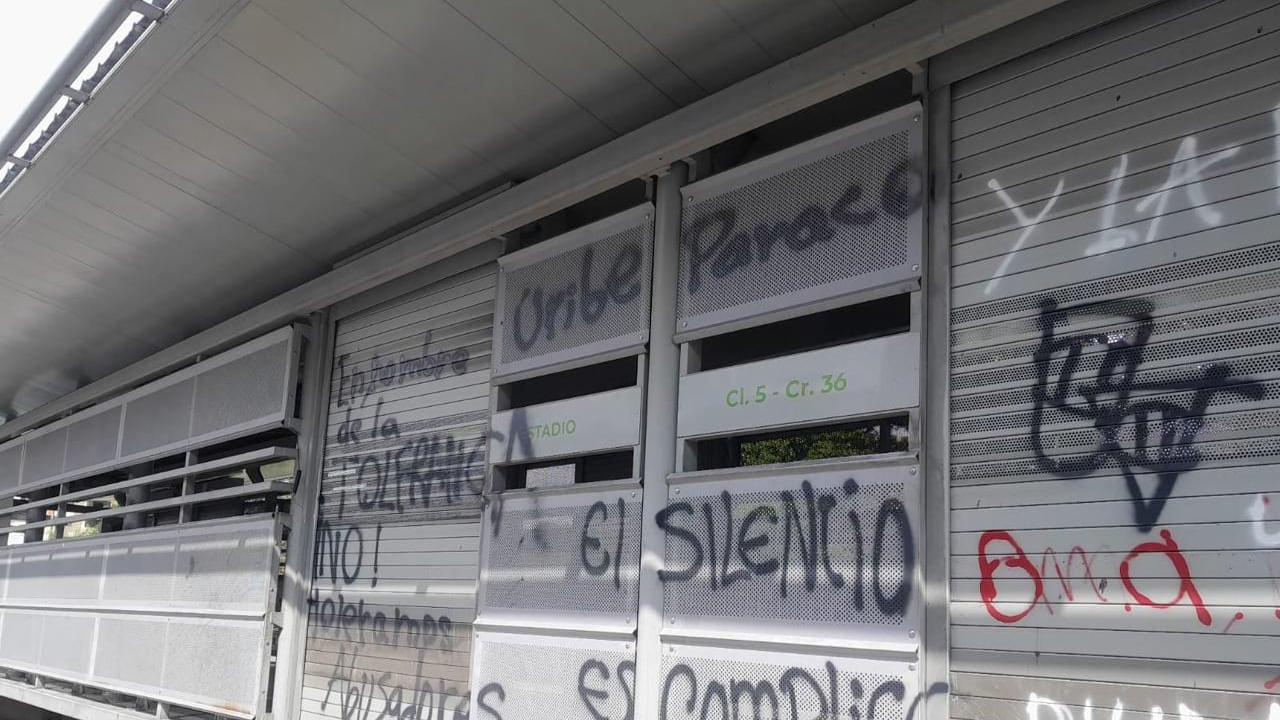 Uribe Paraco
Cl. 5 - Cr. 36
ESTADIO
En nombre
de la
TOLERANCIA
NO!
toleramos
Abusadores
El SILENCIO
ES Complice
Y LA